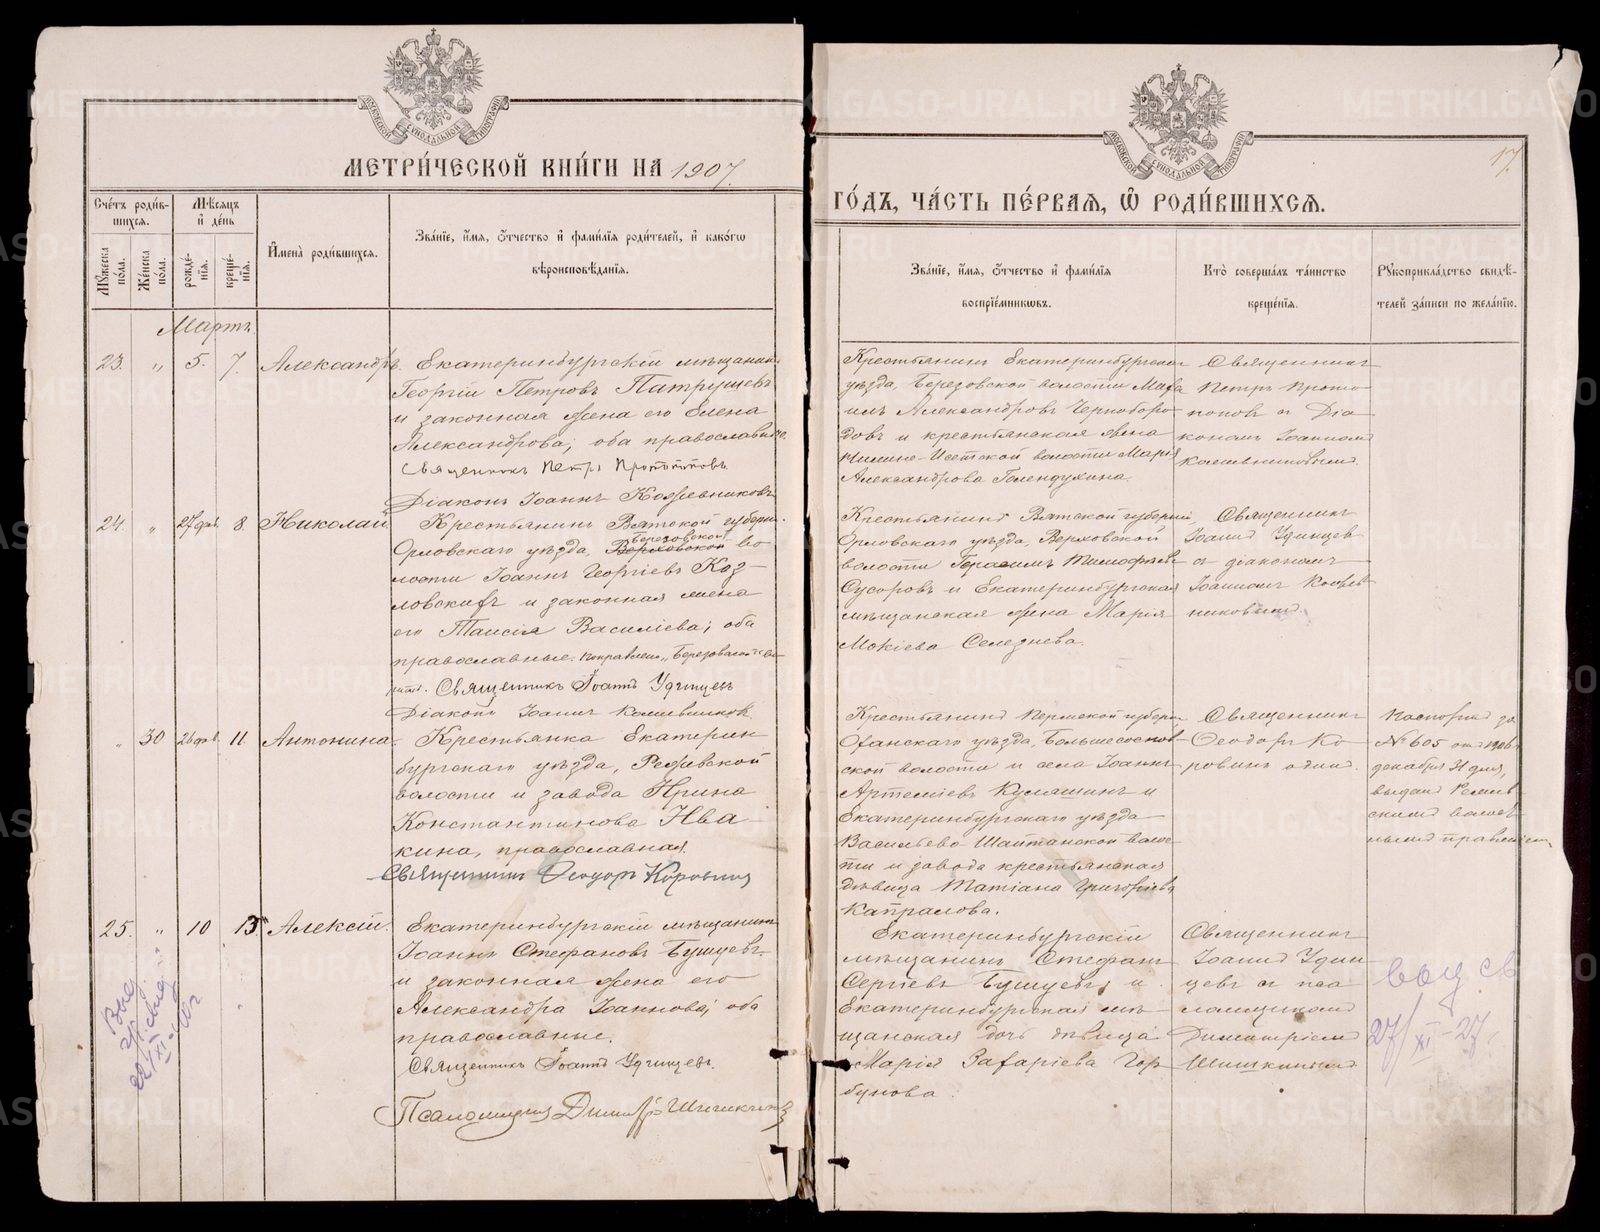 МЕТРИ́ЧЕСКОЙ КНИ́ГИ НА 1907.
ГО́ДЪ, ЧА́СТЬ ПЕ́РВАЯ, Ѡ РОДИ́ВШИХСЯ.
17.
Сче́тъ роди́в-
шихся.
Мѣ́сяцъ
и де́нь
Му́жеска по́ла.
Же́нска по́ла.
рожде́-
нія.
креще́-
нія.
Имена̀ роди́вшихся.
Зва́ніе, и́мя, о́тчество и фами́лія роди́телей, и како́гѡ
вѣроисповѣ́данія.
Зва́ніе, и́мя, о́тчество и фами́лія
воспріе́мниковъ.
Кто̀ соверша́лъ та́инство
креще́нія.
Рукоприкла́дство свидѣ́-
телей за́писи по жела́нію.
Мартъ
23. " 5. 7. Александръ.
Екатеринбургскій мѣщанинъ
Георгій Петровъ Патрушевъ
и законная жена его Елена
Александрова; оба православные.
Священникъ Петръ Протопоповъ
Діаконъ Іоаннъ Кожевниковъ
Крестьянинъ Екатеринбургскаго
уѣзда, Березовской волости
Александровъ Чернобородовъ и крестьянская жена
волости Марія
Александрова Голендухина.
Священникъ
Петръ Прото-
поповъ съ Діа-
кономъ Іоанномъ
Кожевниковымъ.
24. " 27 фев. 8. Николай
Крестьянинъ Вятской губерніи
Орловскаго уѣзда, Березовской
Верховской во-
лости Іоаннъ Георгіевъ Коз-
ловскихъ и законная жена
его Таисія Василіева; оба
православные. Поправлено "Березовской"
Священникъ Іоаннъ Удинцевъ
Діаконъ Іоаннъ Кожевниковъ
Крестьянинъ Вятской губерніи
Орловскаго уѣзда, Верховской
волости Герасимъ Тимофеевъ
Сусоровъ и Екатеринбургская
мѣщанская жена Марія
Мокіева Селезнева.
Священникъ
Іоаннъ Удинцевъ
съ діакономъ
Іоанномъ Кожев-
никовымъ.
" 30 26 фев. 11. Антонина.
Крестьянка Екатерин-
бургскаго уѣзда, Режевской
волости и завода Ирина
Константинова Ива-
кина, православная.
Священникъ Ѳеодоръ Коровинъ
Крестьянинъ Пермской губерніи
Оханскаго уѣзда, Большесоснов-
ской волости и села Іоаннъ
Артеміевъ Кулашинъ и
Екатеринбургскаго уѣзда
Васильево-Шайтанской волос-
ти и завода крестьянская
дѣвица Татіана Григоріева
Капралова.
Священникъ
Ѳеодоръ Ко-
ровинъ одинъ.
Паспортъ за
№ 605 отъ 1906 г.
декабря 21 дня,
выданъ Режев-
скимъ волост-
нымъ правленіемъ
25. " 10 13 Алексій.
Екатеринбургскій мѣщанинъ
Іоаннъ Стефановъ Бушуевъ
и законная жена его
Александра Іоаннова; оба
православные.
Священникъ Іоаннъ Удинцевъ.
Псаломщикъ Димитрій Шишкинъ
Екатеринбургскій
мѣщанинъ Стефанъ
Сергіевъ Бушуевъ и
Екатеринбургская мѣ-
щанская дочь дѣвица
Марія Захаріева Гор-
бунова.
Священникъ
Іоаннъ Удин-
цевъ съ пса-
ломщикомъ
Димитріемъ
Шишкинымъ
27/XI-27.